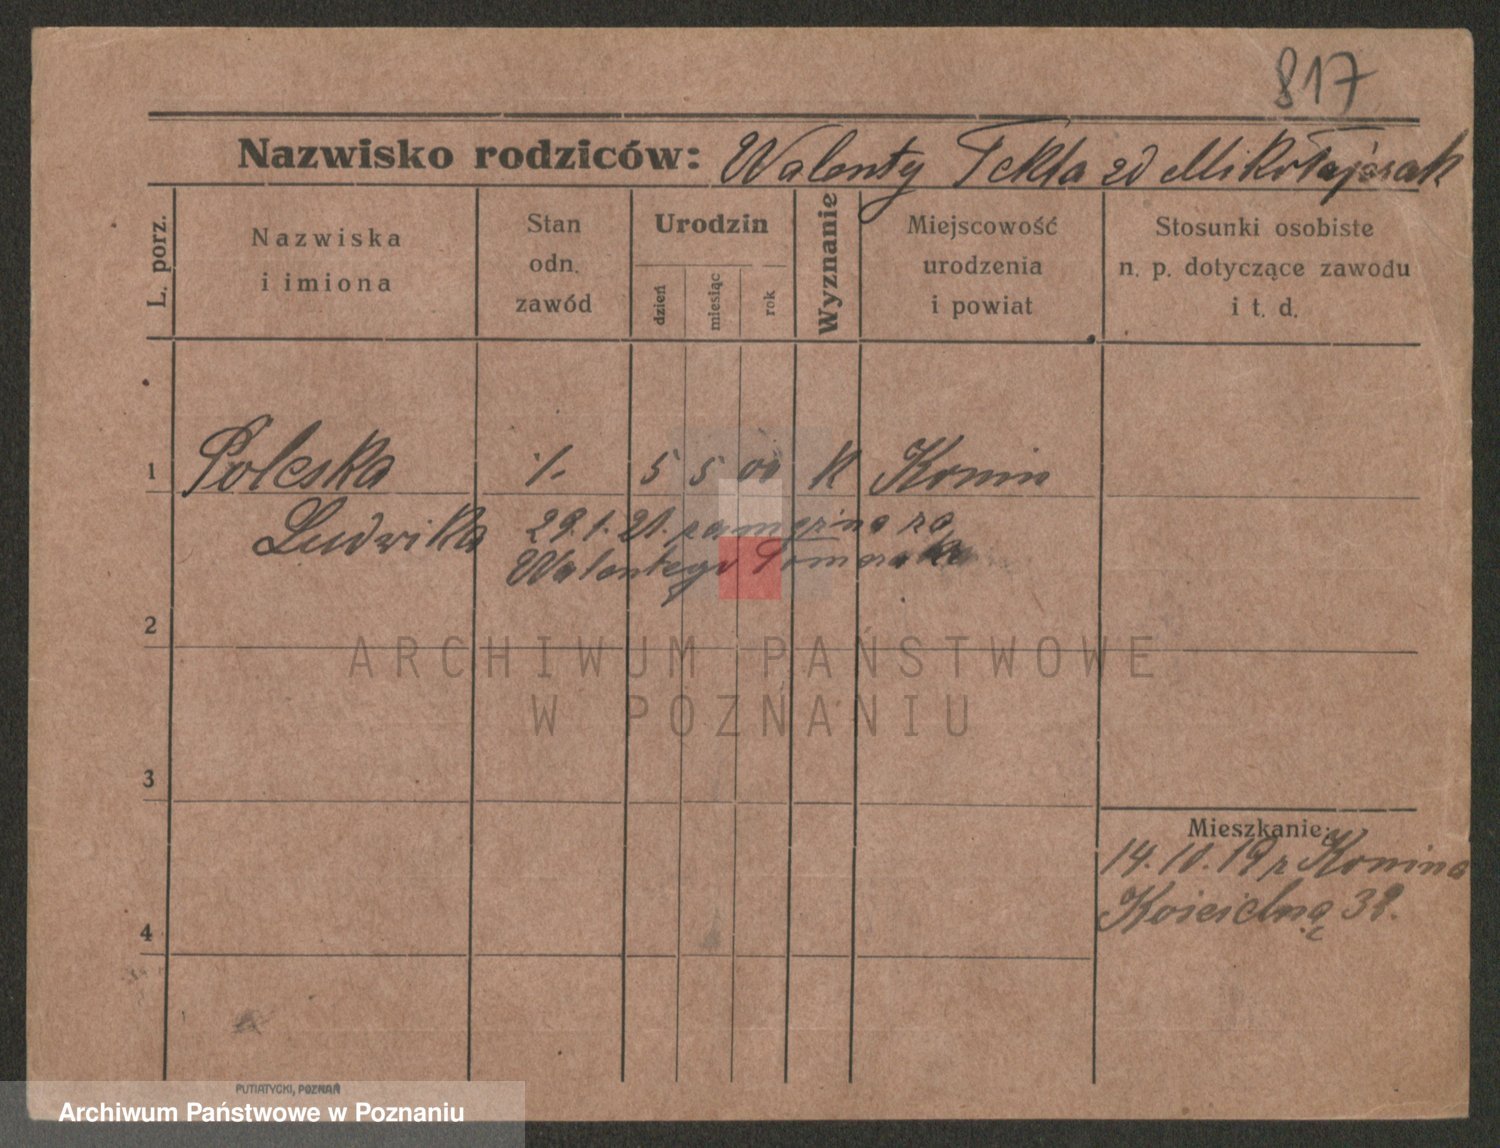 817
Nazwisko rodziców: Walenty Tekla zd Mikołajczak
L. porz.
Nazwiska i imiona
Stan odn. zawód
Urodzin
dzień
miesiąc
rok
Wyznanie
Miejscowość urodzenia i powiat
Stosunki osobiste n. p. dotyczące zawodu i t. d.
1 Poleska /- 5 5 00 K Konin
Ludwika 29.1.21. zamężna za
Walentego
2
ARCHIWUM PAŃSTWOWE
W POZNANIU
3
Mieszkanie:
14.10.19 z Konina
Kościelną 38.
4
PUTIATYCKI, POZNAŃ
Archiwum Państwowe w Poznaniu